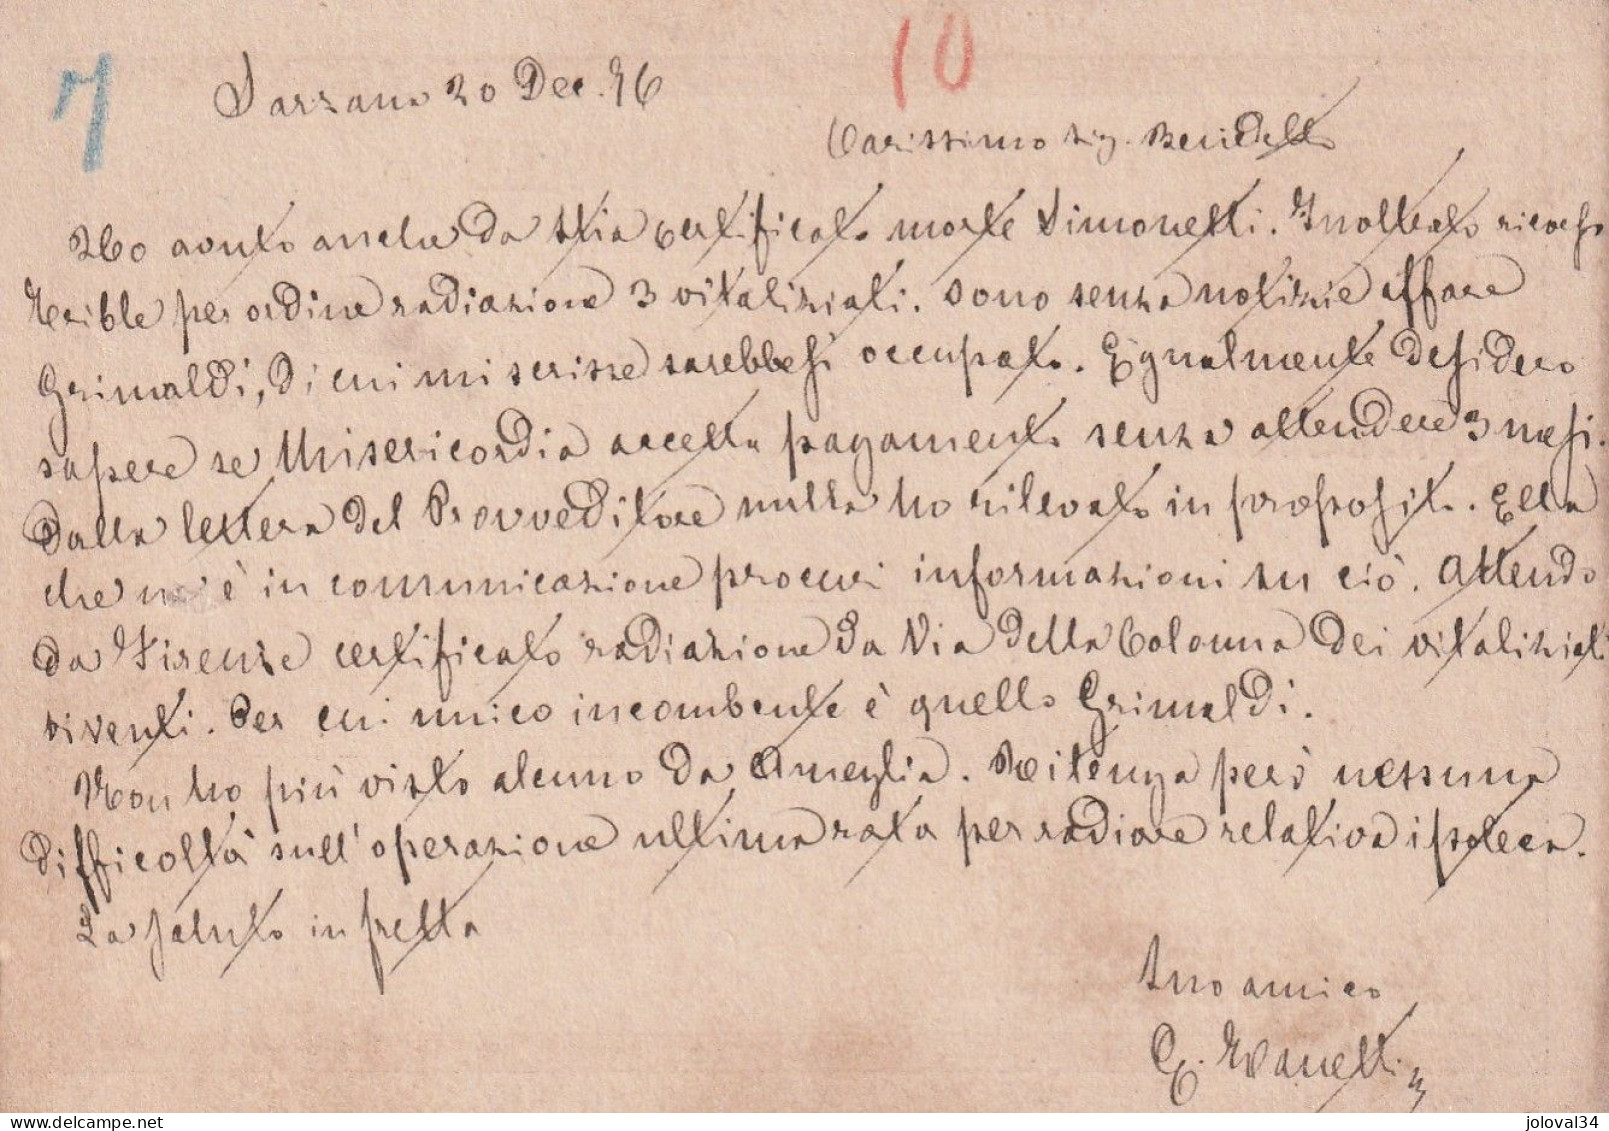 7
10
Sarzana 20 Dec. 76
Carissimo Sig. Benedetto
Ho avuto anche da Stia certificato morte Simonetti. Inoltrato ricorso
per ordine radiazione 3 vitaliziati. Sono senza notizie affare
Grimaldi, di cui mi scrisse sarebbesi occupato. Egualmente desidero
sapere se Misericordia accetta pagamento senza attendere 3 mesi.
Dalla lettera del Provveditore nulla ho rilevato in proposito. Ella
che vi è in comunicazione procuri informazioni su ciò. Attendo
da Firenze certificato radiazione da Via della Colonna dei vitaliziati
viventi. Per cui unico incombente è quello Grimaldi.
Non ho più visto alcuno da Ameglia. Ritengo però nessuna
difficoltà sull'operazione ultima rata per radiare relativa ipoteca.
La saluto in fretta
Suo amico
joloval34